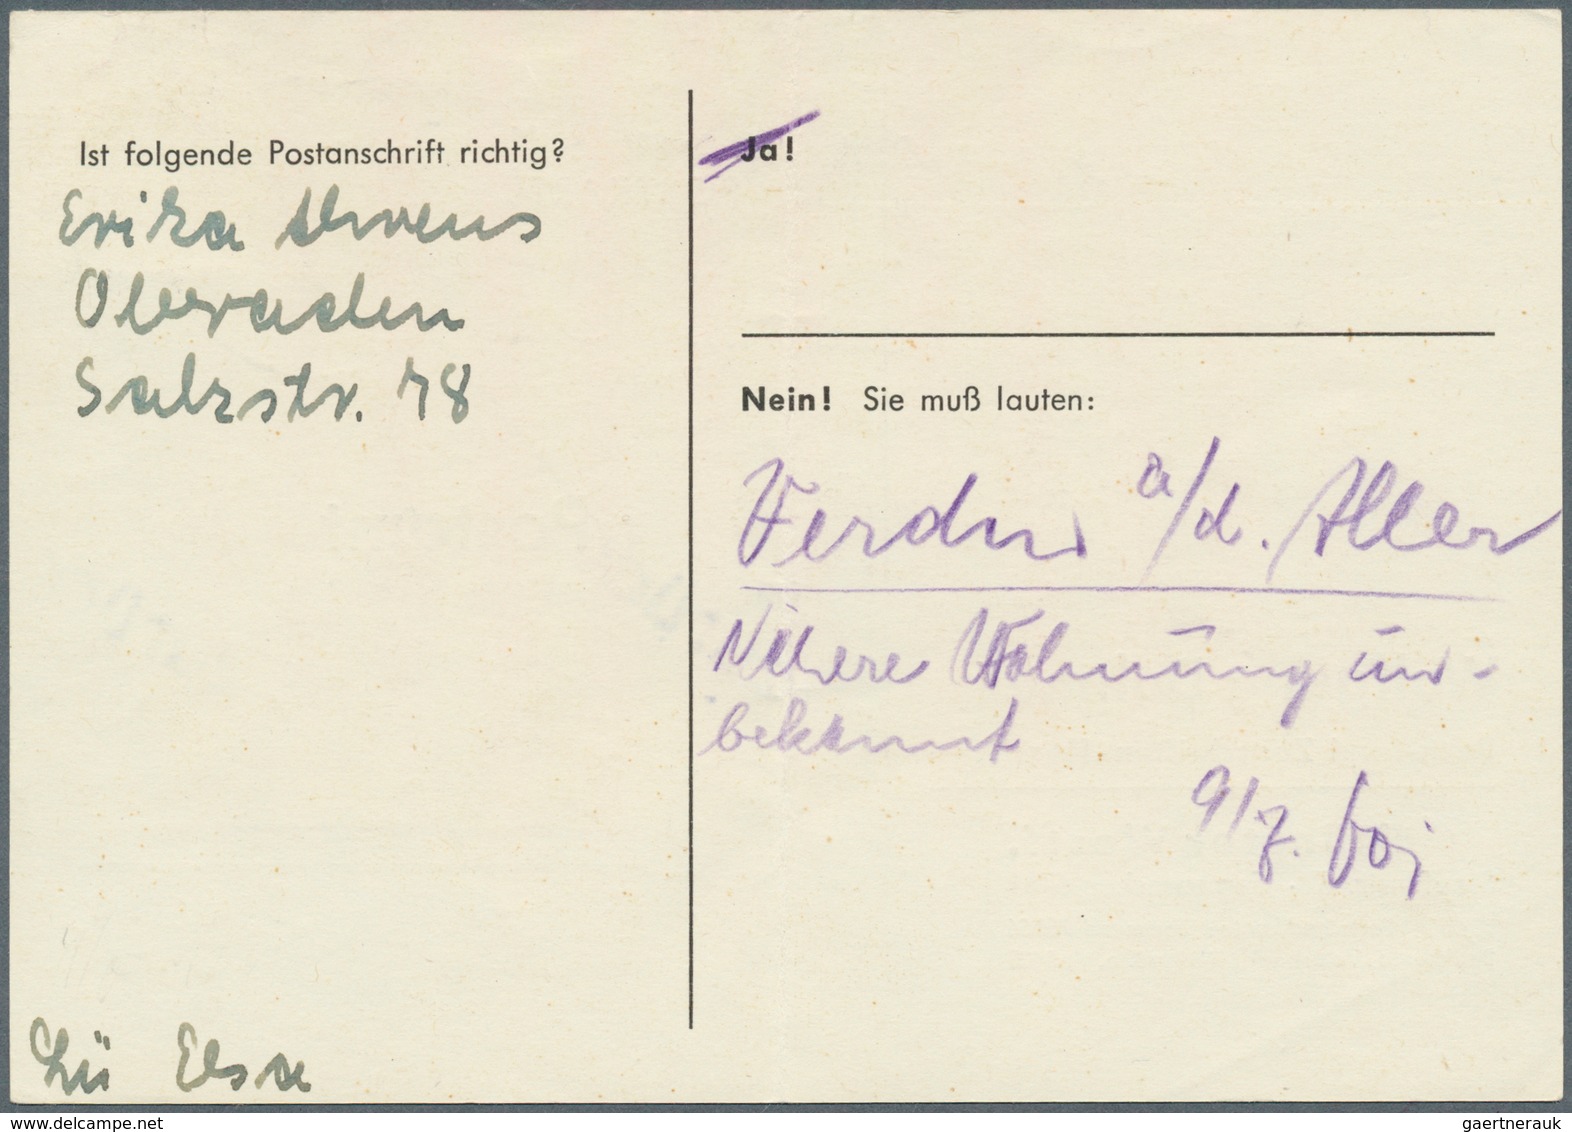 Ist folgende Postanschrift richtig?
Erika Ahrens
Oberaden
Salzstr. 78
Lü Elsa
Ja!
Nein! Sie muß lauten:
Verden a/d. Aller
Nähere Wohnung un-
bekannt
9/7.
delcampe.net
gaertnerauk